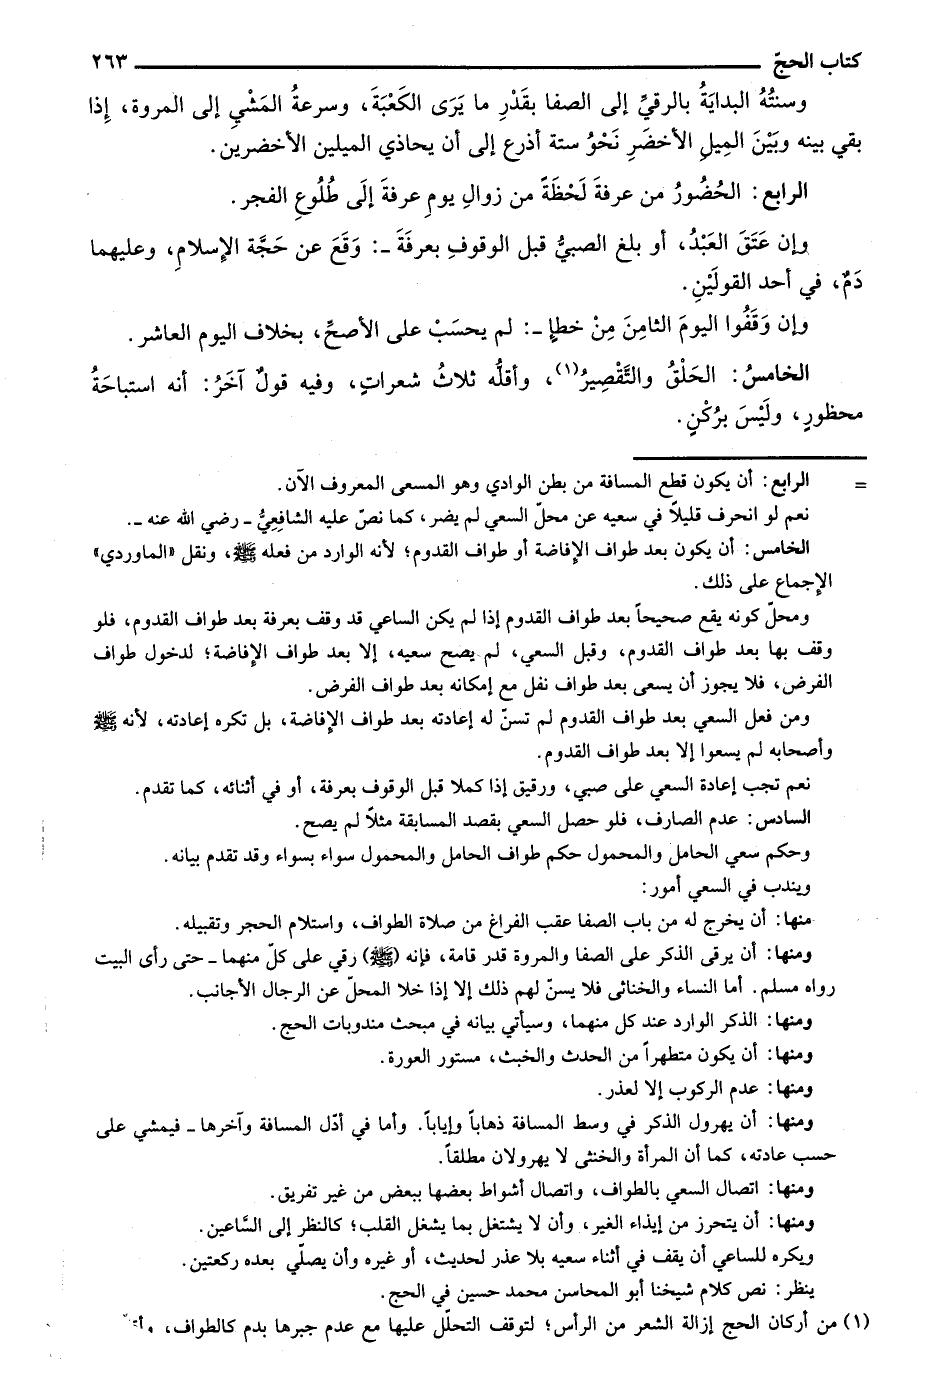 كتاب الحجّ ٢٦٣
وسنتُهُ البدايَةُ بالرقيِّ إلى الصفا بقَدْرِ ما يَرَى الكَعْبَةَ، وسرعةُ المَشْيِ إلى المروة، إِذا
بقي بينه وبَيْنَ المِيلِ الأخضَرِ نَحْوُ ستة أذرع إلى أن يحاذي الميلين الأخضرين.
الرابع: الحُضُورُ من عرفةَ لَحْظَةً من زوالِ يومِ عرفةَ إلَى طُلُوعِ الفجر.
وإن عَتَقَ العَبْدُ، أو بلغ الصبيُّ قبل الوقوفِ بعرفَةَ ـ: وَقَعَ عن حَجَّة الإسلامِ، وعليهما
دَمٌ، في أحد القولَيْنِ.
وإن وَقَفُوا اليومَ الثامنَ مِنْ خطإٍ ـ: لم يحسَبْ على الأصحِّ، بخلاف اليوم العاشر.
الخامسُ: الحَلْقُ والتَّقْصِيرُ(١)، وأقلُّه ثلاثُ شعراتٍ، وفيه قولٌ آخَرُ: أنه استباحَةُ
محظورٍ، ولَيْسَ برُكْنٍ.
= الرابع: أن يكون قطع المسافة من بطن الوادي وهو المسعى المعروف الآن.
نعم لو انحرف قليلاً في سعيه عن محلّ السعي لم يضر، كما نصّ عليه الشافِعِيُّ ـ رضي الله عنه ـ.
الخامس: أن يكون بعد طواف الإفاضة أو طواف القدوم؛ لأنه الوارد من فعله ﷺ، ونقل «الماوردي»
الإجماع على ذلك.
ومحلّ كونه يقع صحيحاً بعد طواف القدوم إذا لم يكن الساعي قد وقف بعرفة بعد طواف القدوم، فلو
وقف بها بعد طواف القدوم، وقبل السعي، لم يصح سعيه، إلا بعد طواف الإفاضة؛ لدخول طواف
الفرض، فلا يجوز أن يسعى بعد طواف نفل مع إمكانه بعد طواف الفرض.
ومن فعل السعي بعد طواف القدوم لم تسنّ له إعادته بعد طواف الإفاضة، بل تكره إعادته، لأنه ﷺ
وأصحابه لم يسعوا إلا بعد طواف القدوم.
نعم تجب إعادة السعي على صبي، ورقيق إذا كملا قبل الوقوف بعرفة، أو في أثنائه، كما تقدم.
السادس: عدم الصارف، فلو حصل السعي بقصد المسابقة مثلاً لم يصح.
وحكم سعي الحامل والمحمول حكم طواف الحامل والمحمول سواء بسواء وقد تقدم بيانه.
ويندب في السعي أمور:
منها: أن يخرج له من باب الصفا عقب الفراغ من صلاة الطواف، واستلام الحجر وتقبيله.
ومنها: أن يرقى الذكر على الصفا والمروة قدر قامة، فإنه (ﷺ) رقي على كلّ منهما ـ حتى رأى البيت
رواه مسلم. أما النساء والخناثى فلا يسنّ لهم ذلك إلا إذا خلا المحلّ عن الرجال الأجانب.
ومنها: الذكر الوارد عند كل منهما، وسيأتي بيانه في مبحث مندوبات الحج.
ومنها: أن يكون متطهراً من الحدث والخبث، مستور العورة.
ومنها: عدم الركوب إلا لعذر.
ومنها: أن يهرول الذكر في وسط المسافة ذهاباً وإياباً. وأما في أدّل المسافة وآخرها ـ فيمشي على
حسب عادته، كما أن المرأة والخنثى لا يهرولان مطلقاً.
ومنها: اتصال السعي بالطواف، واتصال أشواط بعضها ببعض من غير تفريق.
ومنها: أن يتحرز من إيذاء الغير، وأن لا يشتغل بما يشغل القلب؛ كالنظر إلى السَّاعين.
ويكره للساعي أن يقف في أثناء سعيه بلا عذر لحديث، أو غيره وأن يصلّي بعده ركعتين.
ينظر: نص كلام شيخنا أبو المحاسن محمد حسين في الحج.
(١) من أركان الحج إزالة الشعر من الرأس؛ لتوقف التحلّل عليها مع عدم جبرها بدم كالطواف،